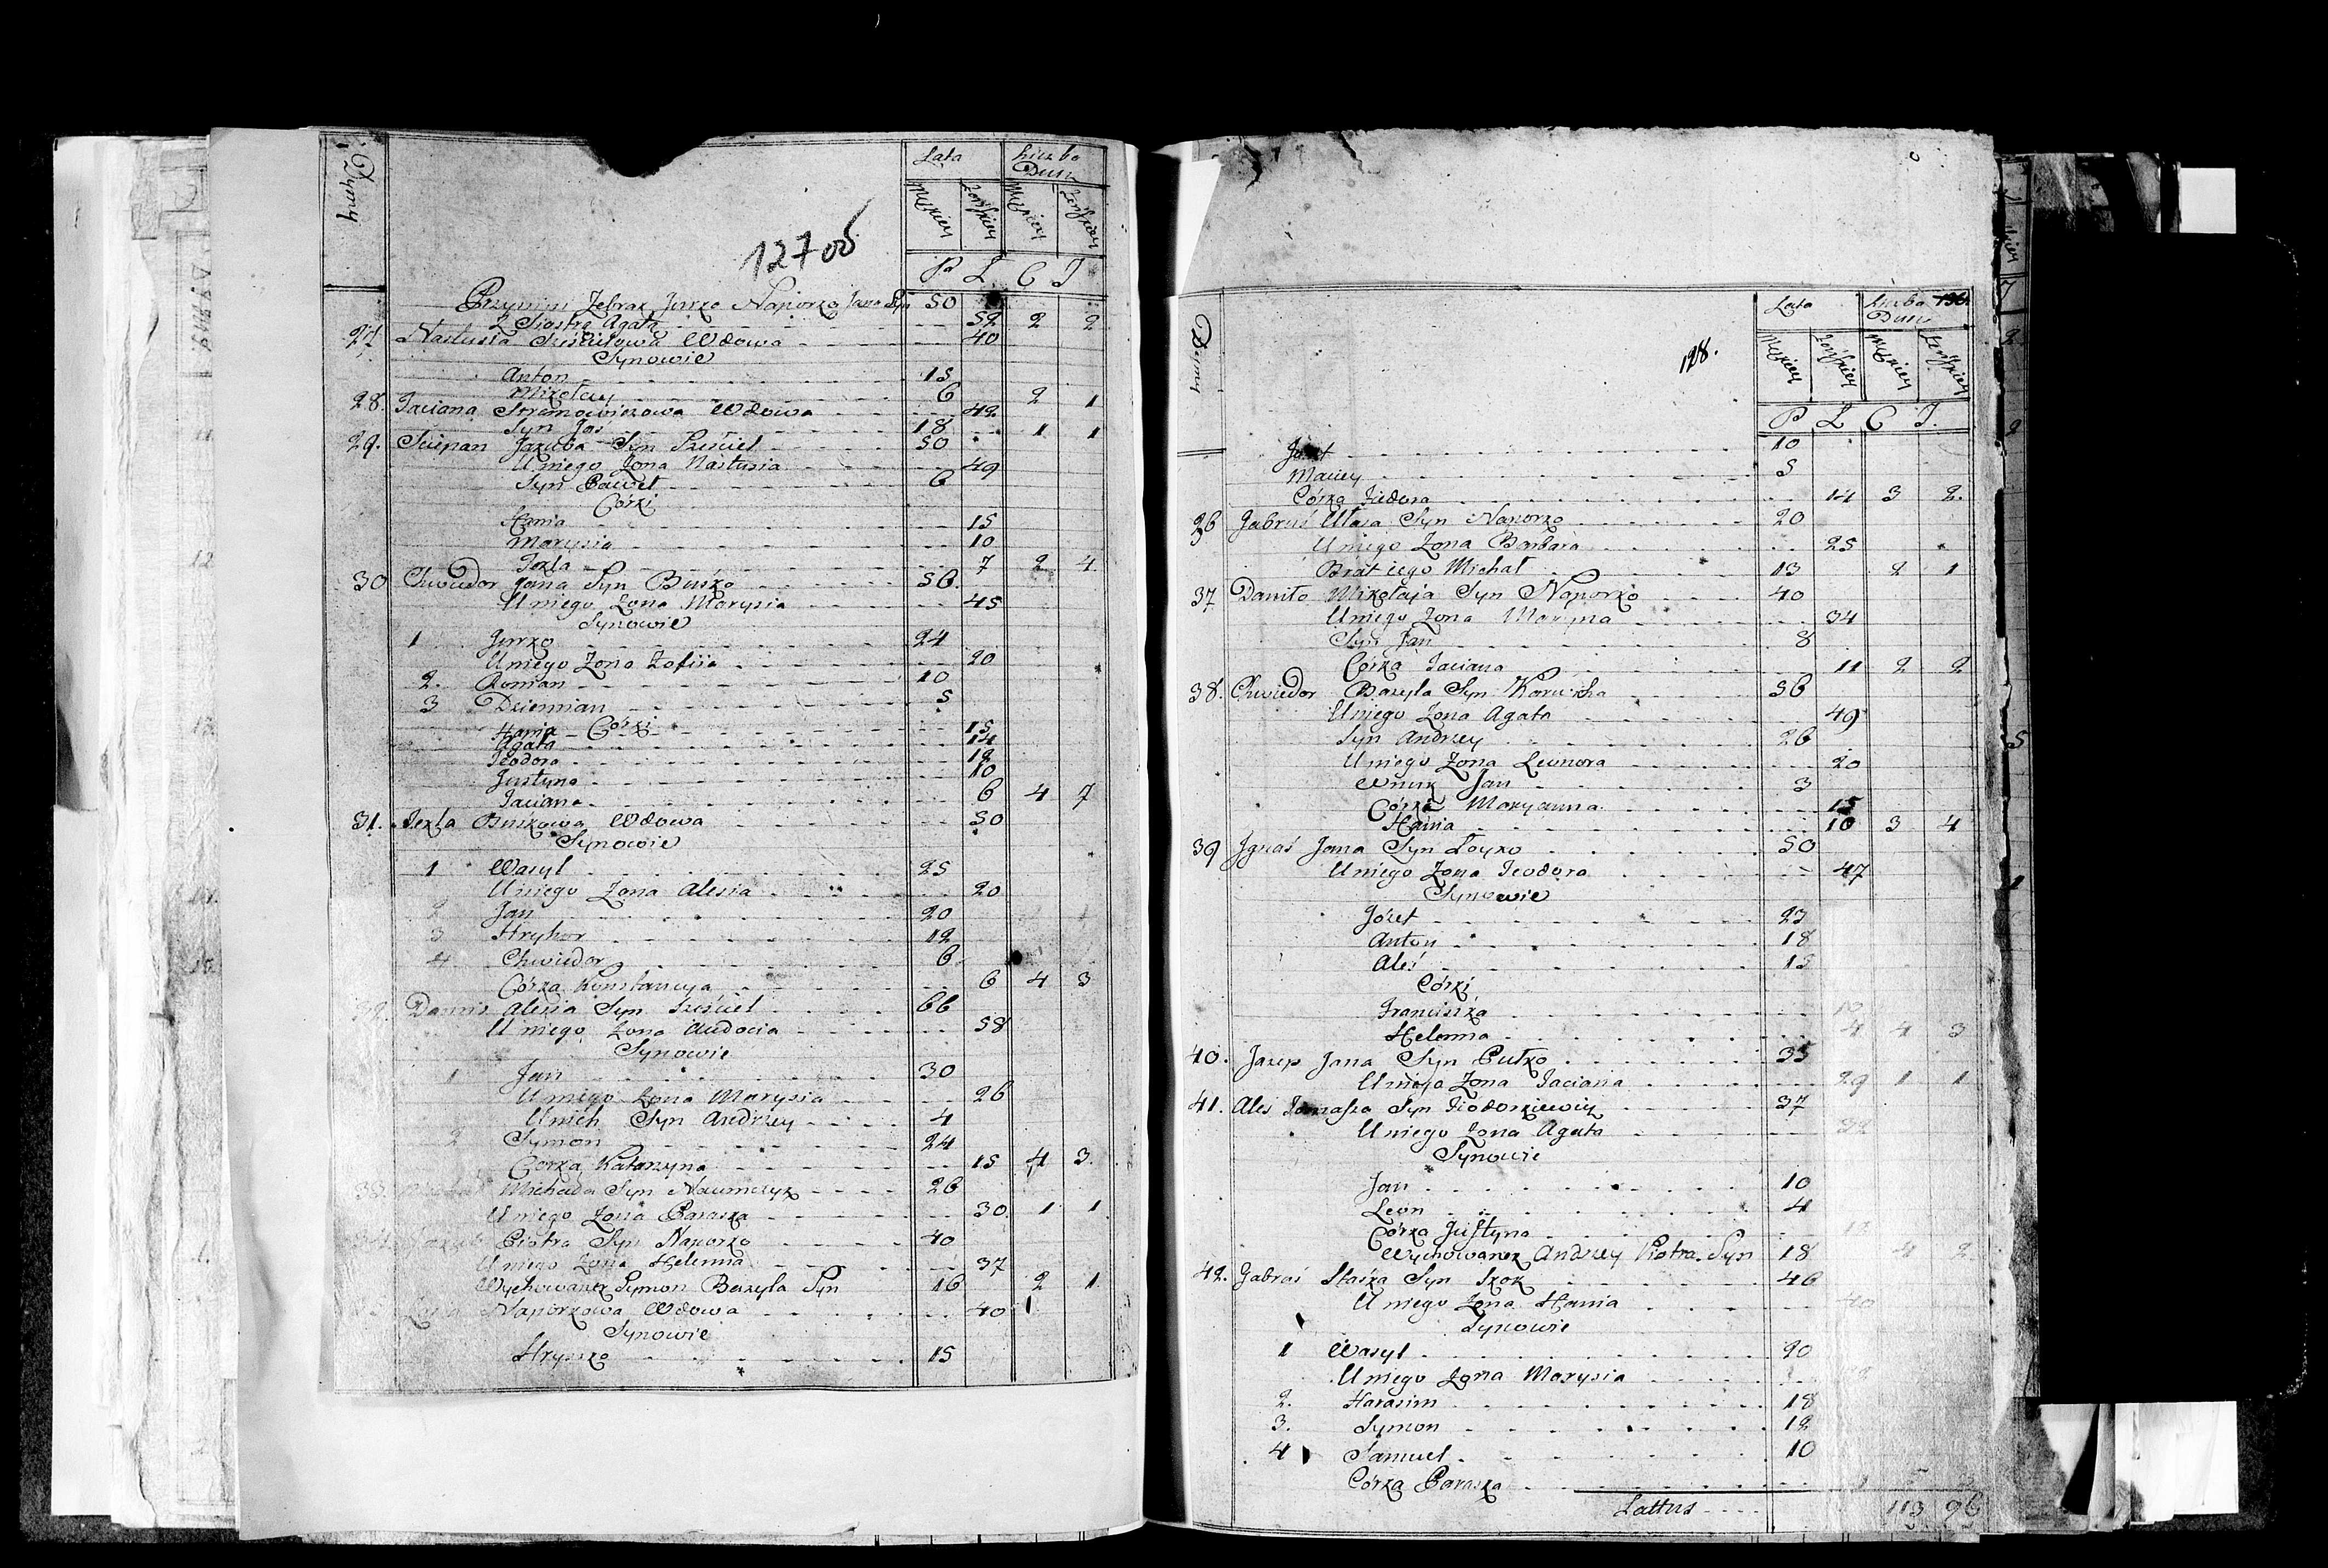 Dymy
Lata
Liczba Dusz
Męzkiey Żeńskiey Męzkiey Żeńskiey
P L C J
127 об
Przymim Żebrak Jurko Naporko Jana Syn 50
Z Siostrą Agatą 52 2 2
27. Nastusia Wdowa 40
Synowie
Anton 15
Mikołay 6 2 1
28. Taciana Wdowa 42
Syn Jaś 18 1 1
29. Sciepan Jakuba Syn 50
U niego Żona Nastusia 49
Syn Paweł 6
Córki
Hania 15
Marysia 10
Tekla 7 2 4
30 Chwiedor Jana Syn Buśko 56
U niego Żona Marysia 45
Synowie
1 Jurko 24
U niego Żona Zofija 20
2. Roman 10
3 Dziemian 5
Hania - Córki 15
Agata 14
Teodora 12
Justyna 10
Taciana 6 4 7
31. Tekla Buskowa Wdowa 50
Synowie
1 Wasyl 25
U niego Żona Alesia 20
2 Jan 20
3 Hryhor 12
4 Chwiedor 6
Córka Konstancya 6 4 3
32. Dannis Alexia Syn 66
U niego Żona Audocia 58
Synowie
1 Jan 30
U niego Żona Marysia 26
U nich Syn Andrzey 4
2 Symon 24
Córka Katarzyna 15 4 3.
33. Michała Syn Naumczyk 26
U niego Żona Paraska 30. 1 1.
Piotra Syn Naporko 40
U niego Żona Helenna 37
Wychowanek Symon Bazyla Syn 16 2 1
Naporkowa Wdowa 40
Synowie
Hryszko 15
Dymy
128.
Lata
Liczba Dusz
Męzkiey Żeńskiey Męzkiey Żeńskiey
P L C J.
Józef 10
Maciey 5
Córka Fiedora 14 3 2.
36 Gabruś Ułasa Syn Naporko 20
U niego Żona Barbara 25
Brat iego Michał 13 2 1
37 Daniło Mikołaja Syn Naporko 40
U niego Żona Maryna 34
Syn Jan 8
Córka Taciana 11 2 2
38. Chwiedor Bazyla Syn 56
U niego Żona Agata 49
Syn Andrzey 26
U niego Żona Leonora 20
Wnuk Jan 3
Córki Maryanna 15
Hania 10 3 4
39 Jgnaś Jana Syn Łoyko 50
U niego Żona Teodora 47
Synowie
Józef 23
Anton 18
Aleś 15
Córki
Franciszka 10
Helenna 4 4 3
40. Jazep Jana Syn Putko 35
U niego Żona Taciana 29 1 1
41. Aleś Tomasza Syn Fiodorkiewicz 37
U niego Żona Agata
Synowie
Jan 10
Leon 4
Córka Justyna
Wychowanek Andrzey Piotra Syn 18 4 2
42. Gabruś Staśka Syn 46
U niego Żona Hania 40
Synowie
1 Wasyl 20
U niego Żona Marysia
2. Harasim 18
3. Symon 12
4 Samuel 10
Córka Paraska
Lattus 113 96